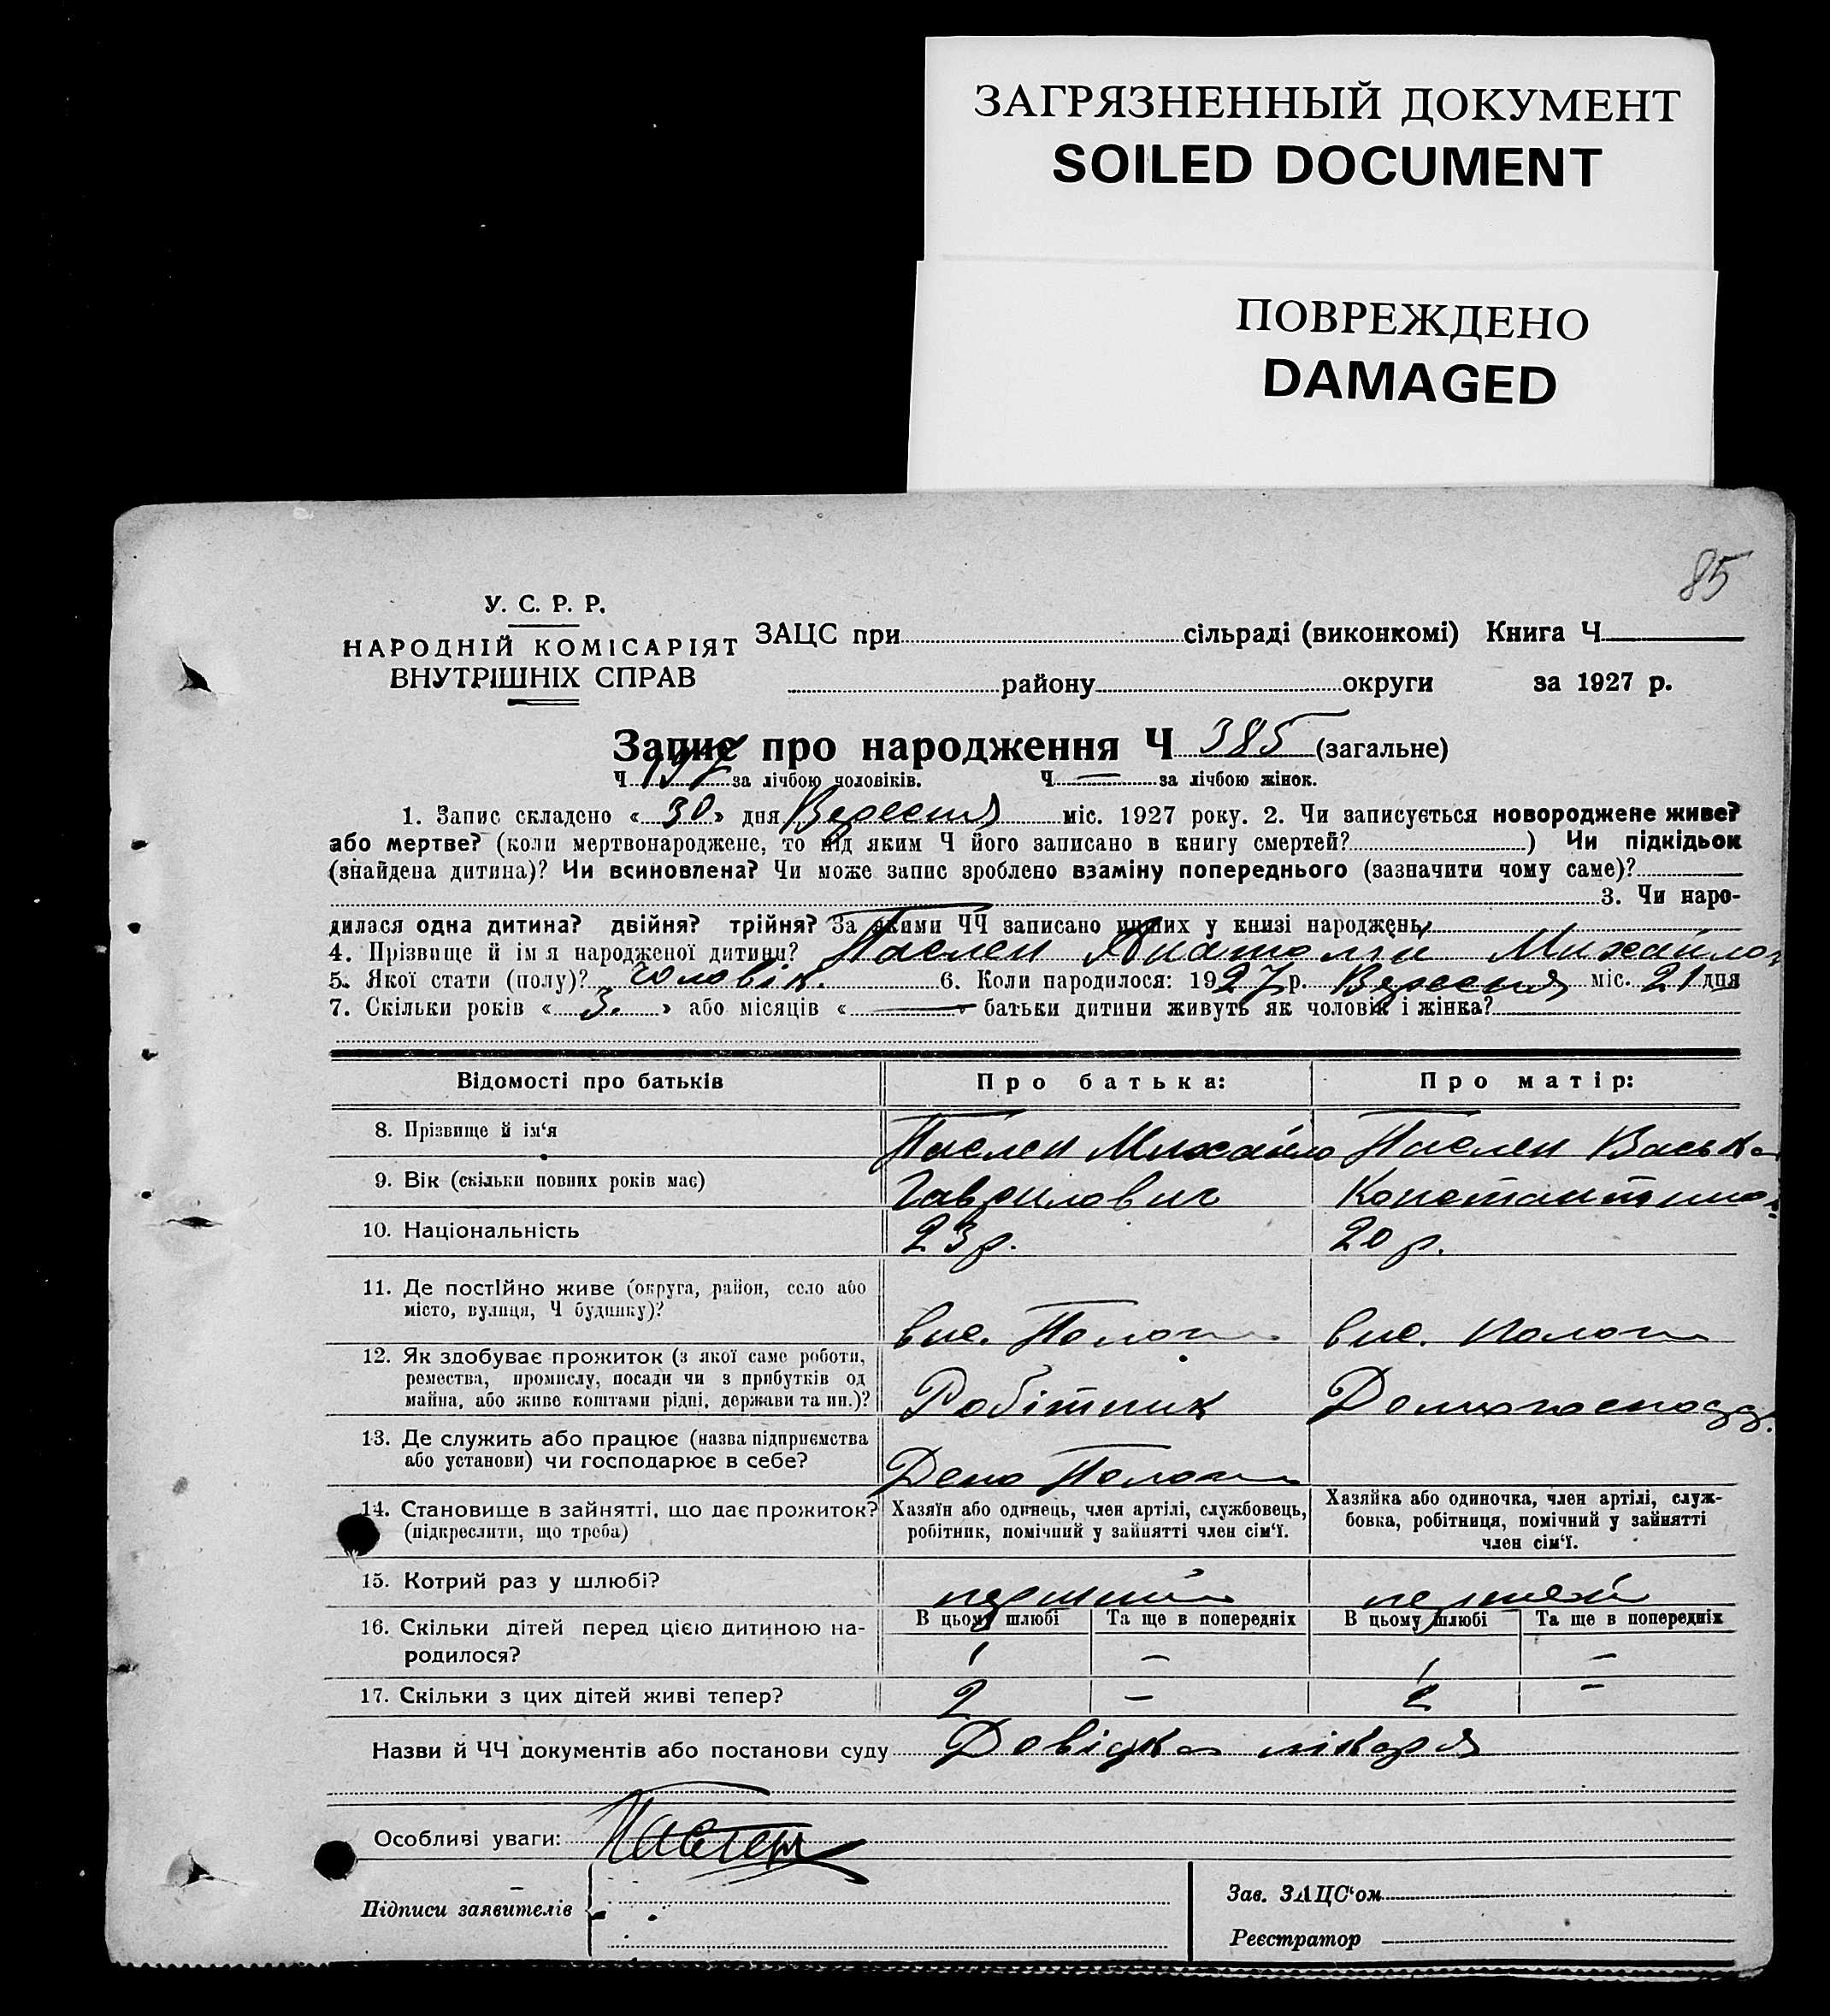 ЗАГРЯЗНЕННЫЙ ДОКУМЕНТ
SOILED DOCUMENT
ПОВРЕЖДЕНО
DAMAGED
85
У. С. Р. Р.
НАРОДНІЙ КОМІСАРІЯТ
ВНУТРІШНІХ СПРАВ
ЗАЦС при сільраді (виконкомі) Книга Ч
району округи за 1927 р.
Запис про народження Ч 385 (загальне)
Ч за лічбою чоловіків. Ч — за лічбою жінок.
1. Запис складено « 30 » дня Вересня міс. 1927 року. 2. Чи записується новороджене живе?
або мертве? (коли мертвонароджене, то під яким Ч його записано в книгу смертей? ) Чи підкідьок
(знайдена дитина)? Чи всиновлена? Чи може запис зроблено взаміну попереднього (зазначити чому саме)?
3. Чи наро-
дилася одна дитина? двійня? трійня? За якими ЧЧ записано инших у книзі народжень
4. Прізвище й ім'я народженої дитини? Паслен Анатолій Михайлов
5. Якої стати (полу)? Чоловік. 6. Коли народилося: 1927 р. Вересня міс. 21 дня
7. Скільки років « 3. » або місяців « — » батьки дитини живуть як чоловік і жінка?
Відомості про батьків Про батька: Про матір:
8. Прізвище й ім'я Паслен Михайло Паслен Васька
9. Вік (скільки повних років має) Гаврилович Константинов
10. Національність 23 р. 20 р.
11. Де постійно живе (округа, район, село або
місто, вулиця, Ч будинку)? вис. Пологи вис. Пологи
12. Як здобуває прожиток (з якої саме роботи,
ремества, промислу, посади чи з прибутків од
майна, або живе коштами рідні, держави та ин.)? Робітник Домогосподд.
13. Де служить або працює (назва підприємства
або установи) чи господарює в себе? Депо Пологи
14. Становище в зайнятті, що дає прожиток?
(підкреслити, що треба)
Хазяїн або одинець, член артілі, службовець,
робітник, помічний у зайнятті член сім'ї.
Хазяйка або одиночка, член артілі, служ-
бовка, робітниця, помічний у зайнятті
член сім'ї.
15. Котрий раз у шлюбі? перший перший
В цьому шлюбі Та ще в попередніх В цьому шлюбі Та ще в попередніх
16. Скільки дітей перед цією дитиною на-
родилося? 1 — 1 —
17. Скільки з цих дітей живі тепер? 2 — 2 —
Назви й ЧЧ документів або постанови суду Довідка лікаря
Особливі уваги: Паслен
Підписи заявителів
Зав. ЗАЦС'ом
Реєстратор